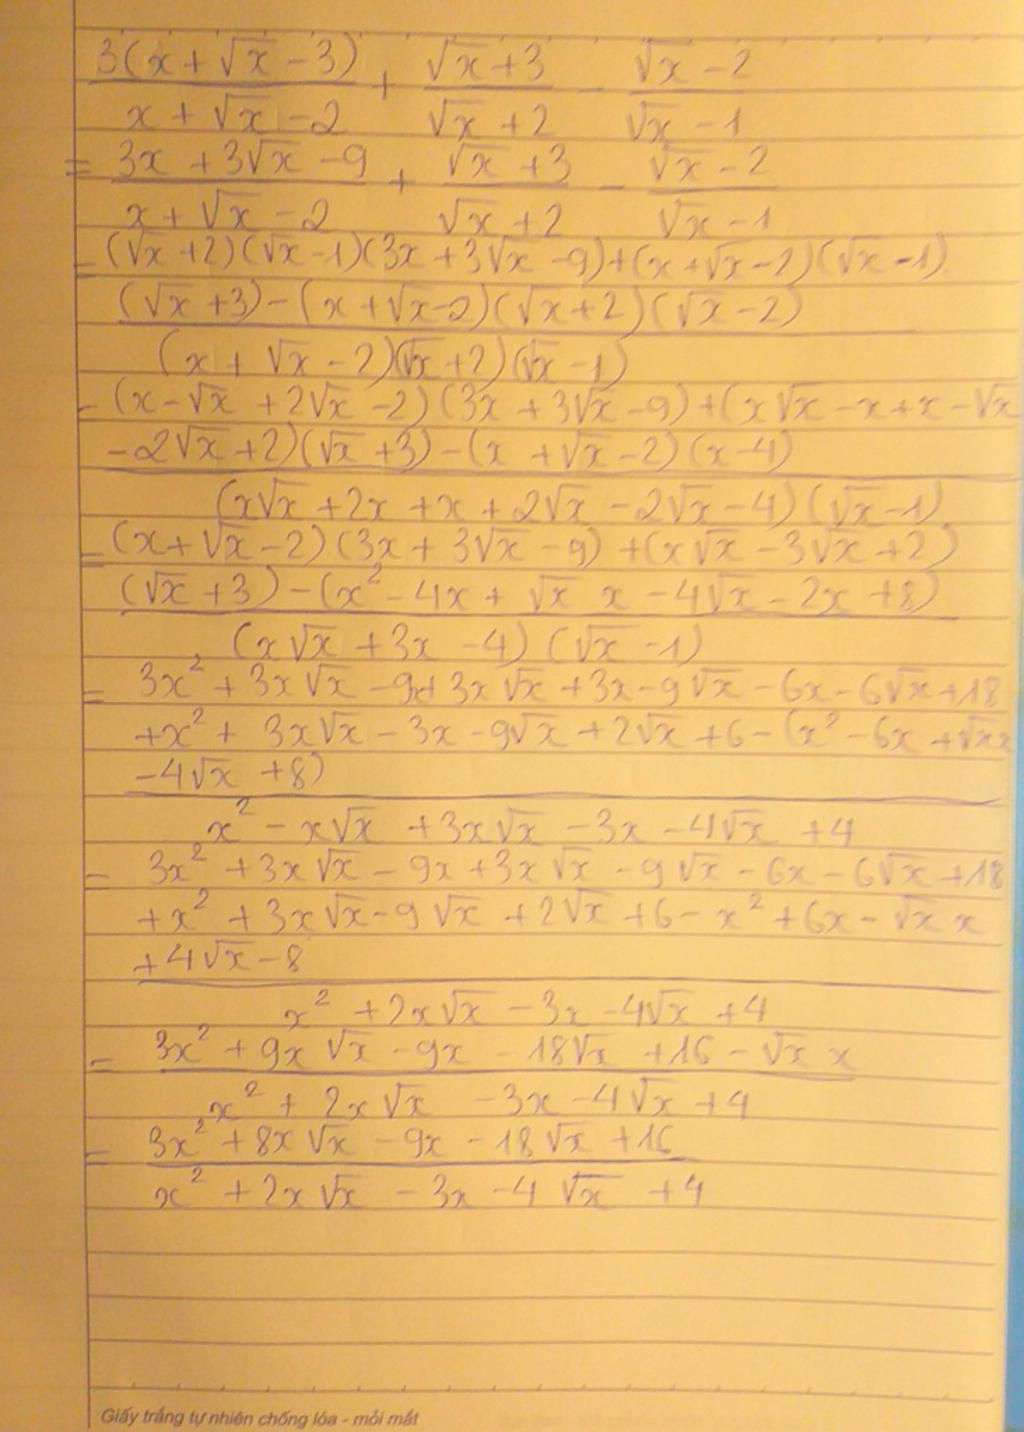 3(x + √x - 3) / x + √x - 2 + √x + 3 / √x + 2 - √x - 2 / √x - 1
= 3x + 3√x - 9 / x + √x - 2 + √x + 3 / √x + 2 - √x - 2 / √x - 1
= (√x + 2)(√x - 1)(3x + 3√x - 9) + (x + √x - 2)(√x - 1)
(√x + 3) - (x + √x - 2)(√x + 2)(√x - 2)
(x + √x - 2)(√x + 2)(√x - 1)
= (x - √x + 2√x - 2)(3x + 3√x - 9) + (x√x - x + x - √x
- 2√x + 2)(√x + 3) - (x + √x - 2)(x - 4)
(x√x + 2x + x + 2√x - 2√x - 4)(√x - 1)
= (x + √x - 2)(3x + 3√x - 9) + (x√x - 3√x + 2)
(√x + 3) - (x² - 4x + √x x - 4√x - 2x + 8)
(x√x + 3x - 4)(√x - 1)
= 3x² + 3x√x - 9x + 3x√x + 3x - 9√x - 6x - 6√x + 18
+ x² + 3x√x - 3x - 9√x + 2√x + 6 - (x² - 6x + √x x
- 4√x + 8)
x² - x√x + 3x√x - 3x - 4√x + 4
= 3x² + 3x√x - 9x + 3x√x - 9√x - 6x - 6√x + 18
+ x² + 3x√x - 9√x + 2√x + 6 - x² + 6x - √x x
+ 4√x - 8
x² + 2x√x - 3x - 4√x + 4
= 3x² + 9x√x - 9x - 18√x + 16 - √x x
x² + 2x√x - 3x - 4√x + 4
= 3x² + 8x√x - 9x - 18√x + 16
x² + 2x√x - 3x - 4√x + 4
Giấy trắng tự nhiên chống lóa - mỏi mắt